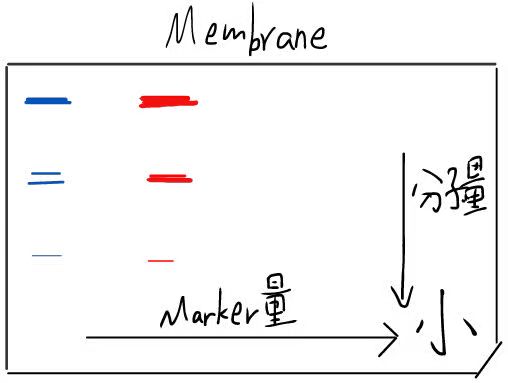 Membrane
分子量
Marker量
小